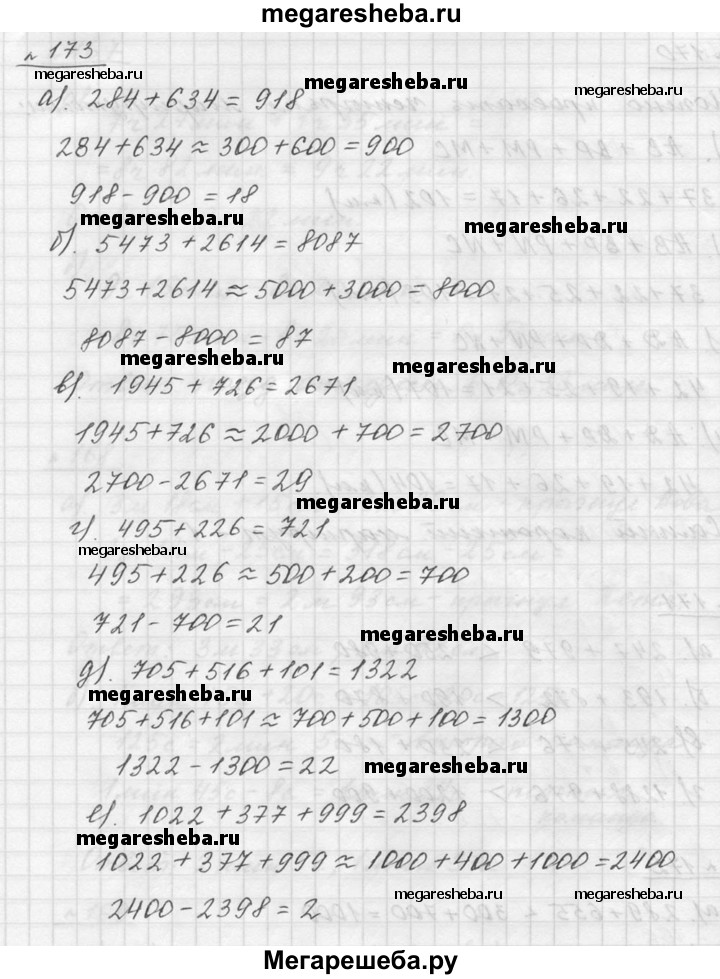 megaresheba.ru
№ 173
megaresheba.ru
а). 284 + 634 = 918
megaresheba.ru
284 + 634 ≈ 300 + 600 = 900
918 - 900 = 18
megaresheba.ru
megaresheba.ru
б). 5473 + 2614 = 8087
5473 + 2614 ≈ 5000 + 3000 = 8000
8087 - 8000 = 87
megaresheba.ru
megaresheba.ru
в). 1945 + 726 = 2671
1945 + 726 ≈ 2000 + 700 = 2700
2700 - 2671 = 29
megaresheba.ru
г). 495 + 226 = 721
megaresheba.ru
495 + 226 ≈ 500 + 200 = 700
721 - 700 = 21
megaresheba.ru
д). 705 + 516 + 101 = 1322
megaresheba.ru
705 + 516 + 101 ≈ 700 + 500 + 100 = 1300
1322 - 1300 = 22
megaresheba.ru
е). 1022 + 377 + 999 = 2398
megaresheba.ru
1022 + 377 + 999 ≈ 1000 + 400 + 1000 = 2400
2400 - 2398 = 2
megaresheba.ru
megaresheba.ru
Мегарешеба.ру